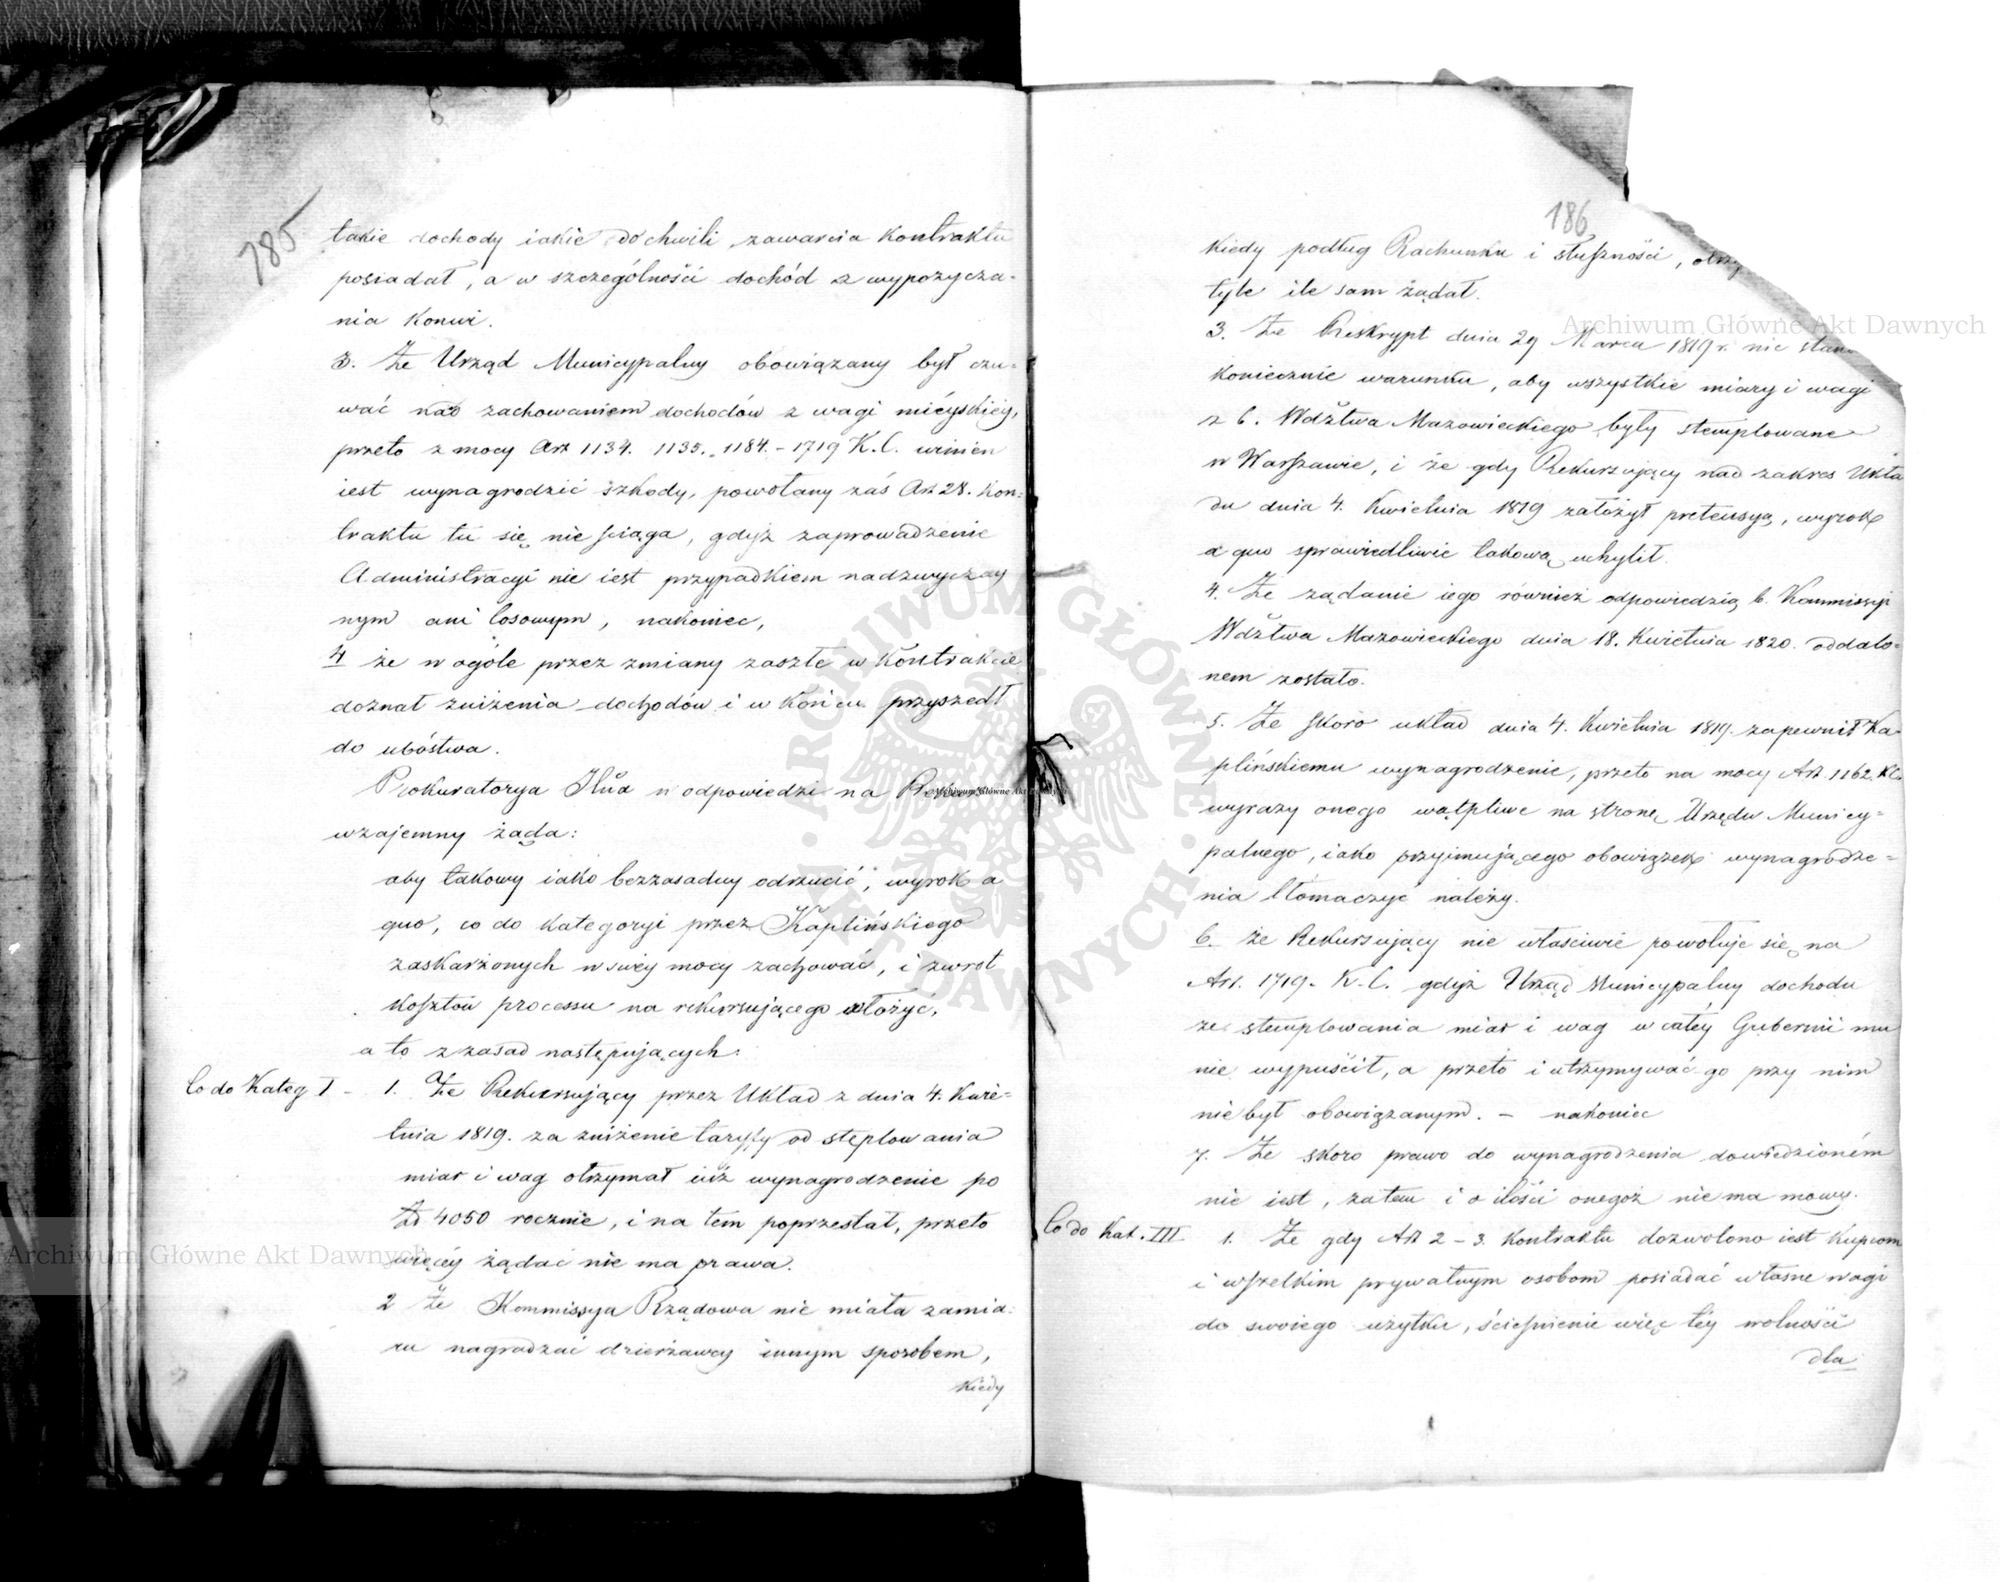 185
takie dochody iakie do chwili zawarcia Kontraktu
posiadał, a w szczególności dochód z wypożycza-
nia Konwi.
3. Że Urząd Municypalny obowiązany był czu-
wać nad zachowaniem dochodów z wagi mieyskiéy,
przeto z mocy Art 1134. 1135. 1184. - 1719 K.C. winien
iest wynagrodzić szkody, powołany zaś Art 28. Kon-
traktu tu się nie ściąga, gdyż zaprowadzenie
Administracyi nie iest przypadkiem nadzwyczay
nym ani losowym, nakoniec,
4 że w ogóle przez zmiany zaszłe w Kontrakcie
doznał zniżenia dochodów i w końcu przyszedł
do ubóstwa.
Prokuratorya w odpowiedzi na
wzajemny żąda:
aby takowy iako bezzasadny odrzucić, wyrok a
quo, co do kategoryi przez Kaplińskiego
zaskarżonych w swéy mocy zachować, i zwrot
kosztów processu na rekursującego włożyć,
a to z zasad następujących:
Co do Kateg I - 1. Że Rekursujący przez Układ z dnia 4. Kwie-
tnia 1819. za zniżenie taryfy od stęplowania
miar i wag otrzymał iuż wynagrodzenie po
Zł 4050 rocznie, i na tem poprzestał, przeto
więcéy żądać nie ma prawa.
2 Że Kommissya Rządowa nie miała zamia-
ru nagradzać dzierżawcy innym sposobem,
kiedy
186
kiedy podług Rachunku i słuszności,
tyle ile sam żądał.
3. Że Reskrypt dnia 29 Marca 1819 r. nie
koniecznie warunku, aby wszystkie miary i wagi
z b. Wdztwa Mazowieckiego były stemplowane
w Warszawie, i że gdy Rekursujący nad zakres Ukła
du dnia 4. Kwietnia 1819 założył pretensyą, wyrok
a quo sprawiedliwie takową uchylił.
4. Że żądanie iego również odpowiedzią b. Kommissyi
Wdztwa Mazowieckiego dnia 18. Kwietnia 1820. oddalo-
nem zostało.
5. Że skoro układ dnia 4. Kwietnia 1819. zapewnił Ka-
plińskiemu wynagrodzenie, przeto na mocy Art. 1162. K.C.
wyrazy onego wątpliwe na stronę Urzędu Municy-
palnego, iako przyimującego obowiązek wynagrodze-
nia tłomaczyć należy.
6. że Rekursujący nie właściwie powołuje się na
Art. 1719. K.C. gdyż Urząd Municypalny dochodu
ze stemplowania miar i wag w całéy Gubernii mu
nie wypuścił, a przeto i utrzymywać go przy nim
nie był obowiązanym. - nakoniec
7. Że skoro prawo do wynagrodzenia dowiedzioném
nie iest, zatem i o ilości onegoż nie ma mowy.
Co do Kat. III 1. Że gdy Art 2-3. Kontraktu dozwolono iest Kupcom
i wszelkim prywatnym osobom posiadać własne wagi
do swoiego użytku, ścieśnienie więc téy wolności
dla
Archiwum Główne Akt Dawnych
Archiwum Główne Akt Dawnych
Archiwum Główne Akt Dawnych
ARCHIWUM GŁÓWNE AKT DAWNYCH